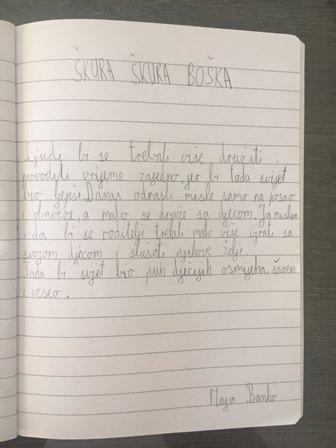 ŠKURA ŠKURA BOŠKA
Ljudi bi se trebali više družiti i
provoditi vrijeme zajedno, jer bi tada svijet
bio ljepši. Danas odrasli misle samo na posao
i obaveze, a malo se druže sa djecom. Ja mislim
da bi se roditelji trebali malo više igrati sa
svojom djecom i slušati njihove želje.
Tada bi svijet bio pun dječijih osmijeha, šaren
i veseo.
Maja Banko